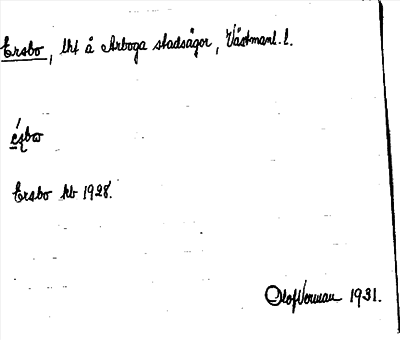 Ersbo, lht å Arboga stadsägor, Västmanl. l.
Ersbo kb 1928.
Olof Vennau 1931.